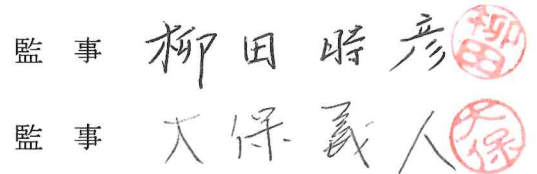 監事 柳田時彦 柳田
監事 大保義人 大保